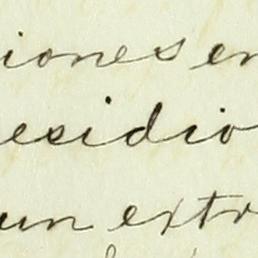 iones en
esidio
un extr